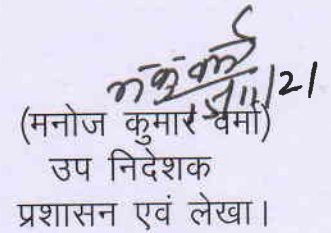 (मनोज कुमार वर्मा)
उप निदेशक
प्रशासन एवं लेखा।